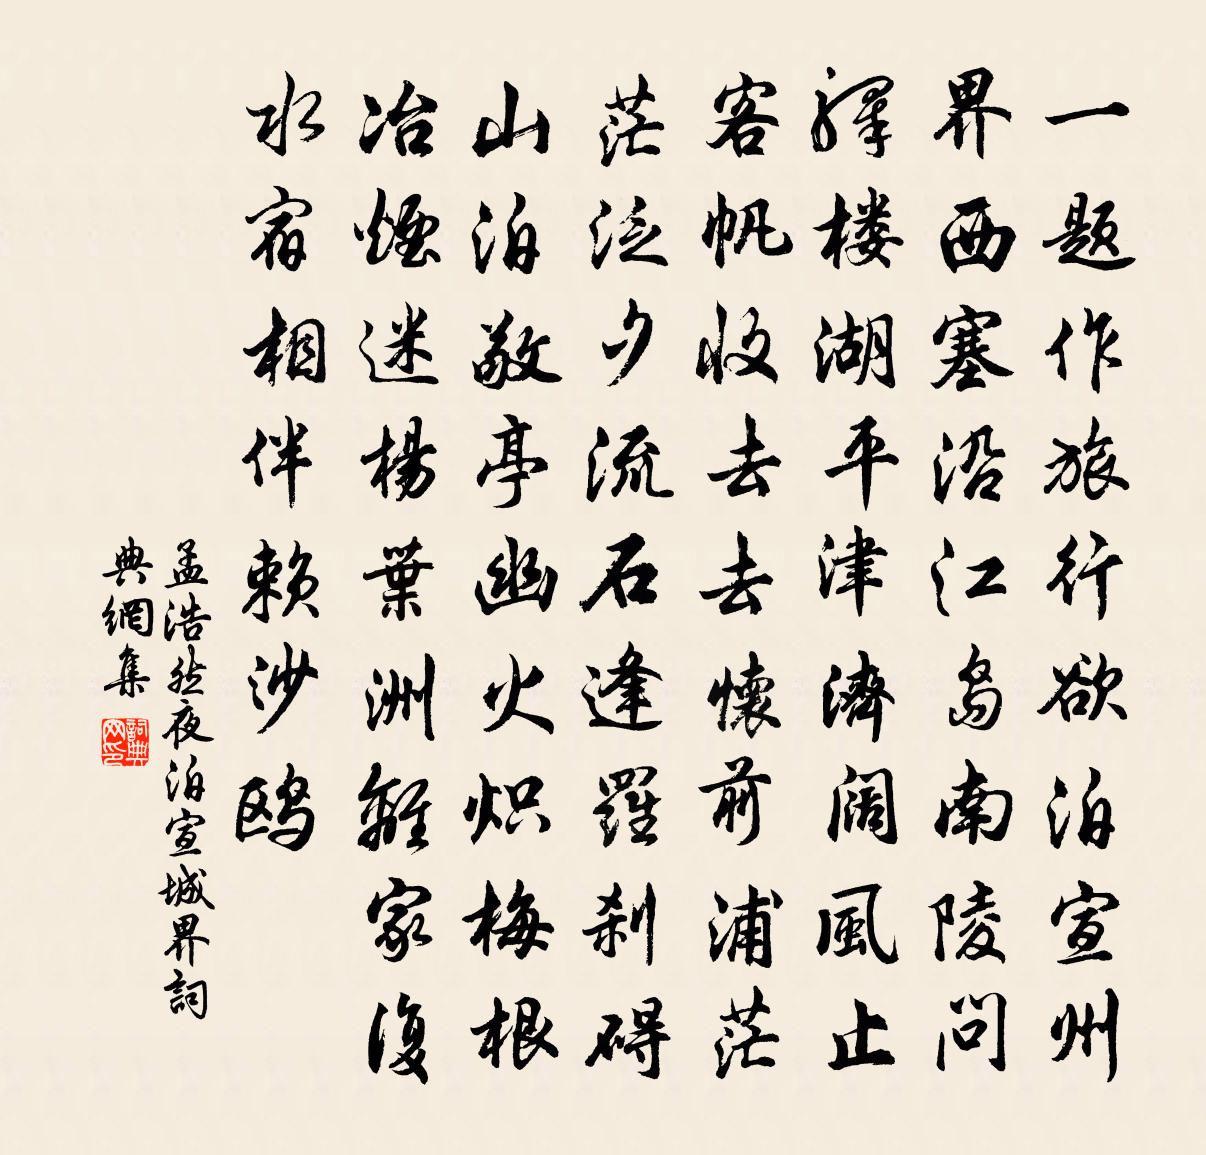 一题作旅行欲泊宣州
界西塞沿江島南陵問
驛楼湖平津濟闊風止
客帆收去去懷前浦茫
茫泛夕流石逢羅刹碍
山泊敬亭幽火炽梅根
冶煙迷楊葉洲離家復
水宿相伴賴沙鷗
孟浩然夜泊宣城界詞
典網集
詞典網印